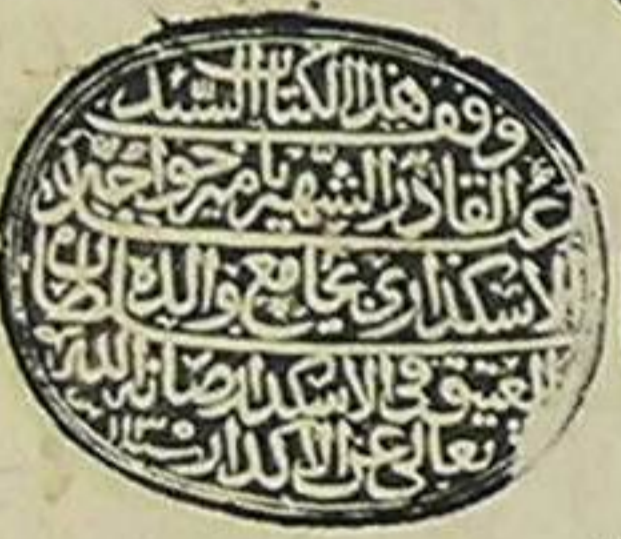 وقف هذا الكتاب السيد
عبد القادر الشهير بامير خواجه
الاسكداري بجامع والده سلطان
العتيق في الاسكدار صانه الله
تعالى عن الاكدار سنه ١١٣٥